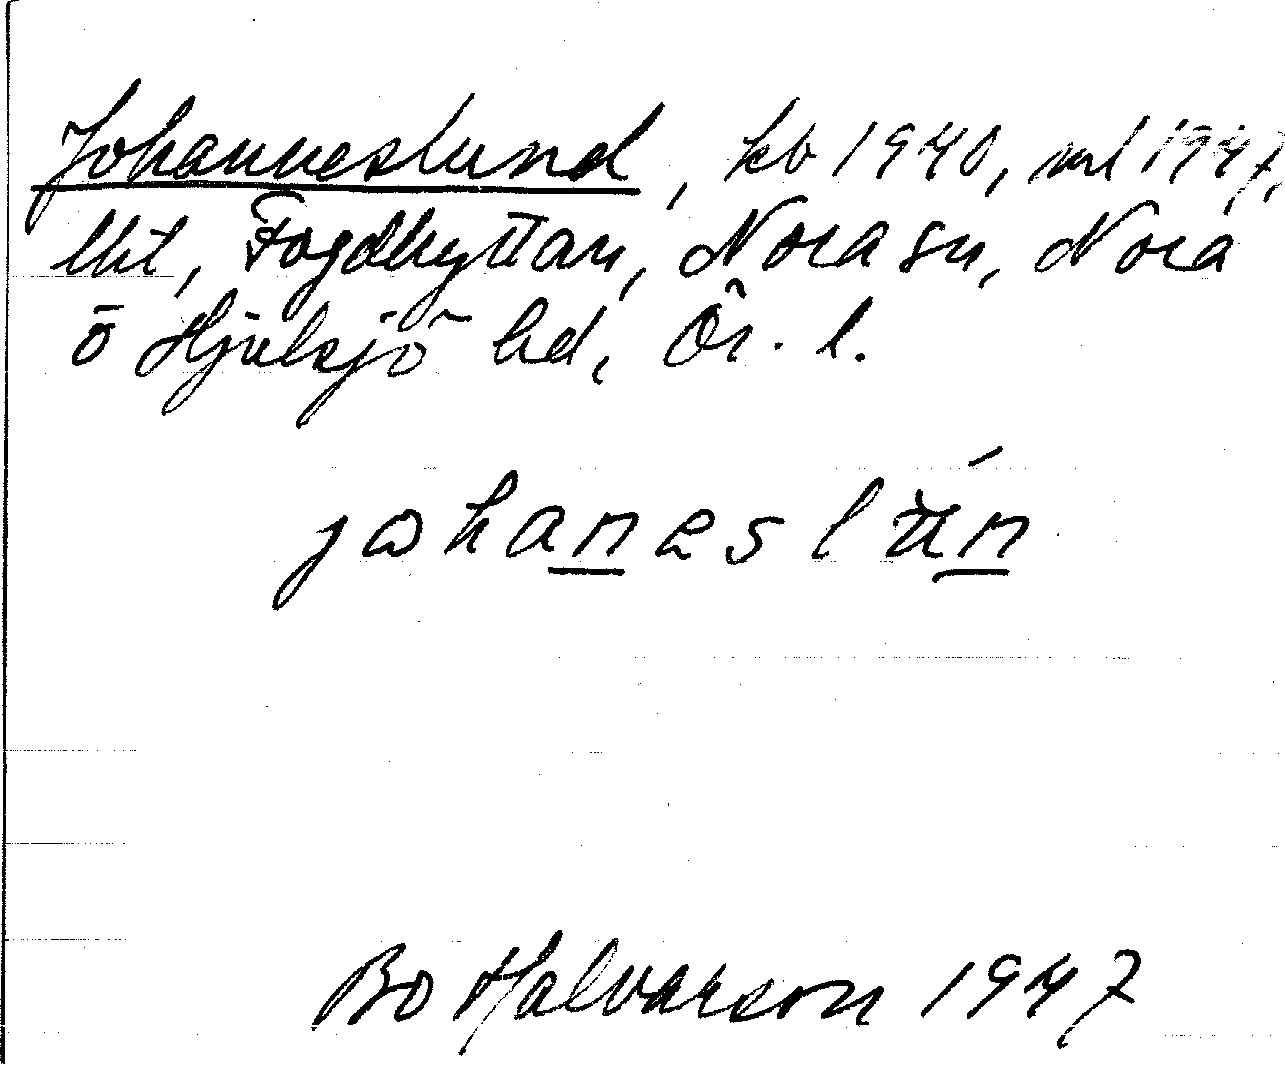 Johanneslund, kb 1940, ml 1947,
lht, Fogdhyttan, Nora sn, Nora
o Hjulsjö hd, Ör. l.
johaneslún
Bo Halvarson 1947